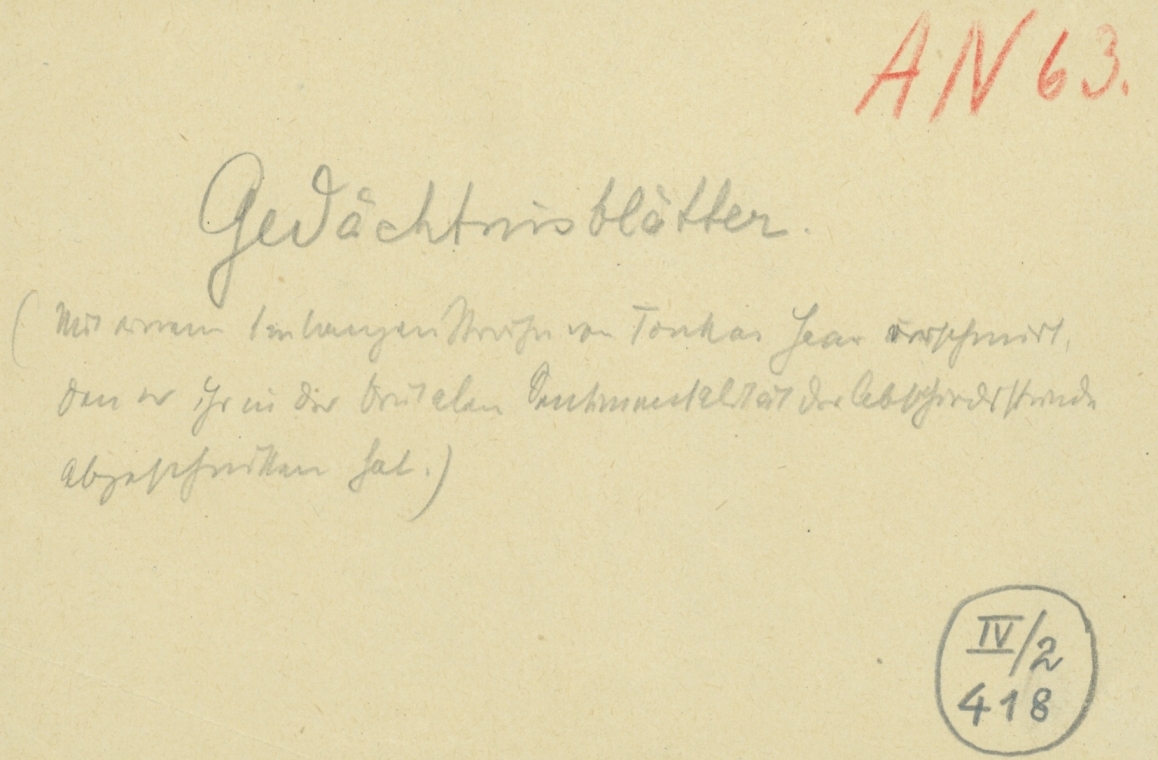 AN 63.
Gedächtnisblätter.
(Mit einem von Tonkas Haar verschnürt,
den er ihr in der brutalen Sentimentalität der Abschiedsstunde
abgeschnitten hat.)
IV/2
418